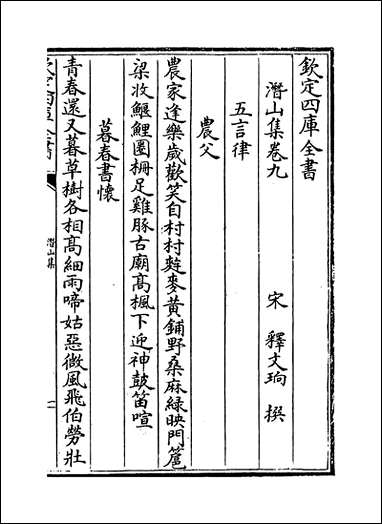 欽定四庫全書
潛山集卷九
宋 釋文珦 撰
五言律
農父
農家逢樂歲歡笑自村村麰麥黃鋪野桑麻綠映門罶
梁收鰋鯉圈柵足雞豚古廟髙楓下迎神鼓笛喧
暮春書懷
青春還又暮草樹各相髙細雨啼姑惡微風飛伯勞壯
潛山集
一